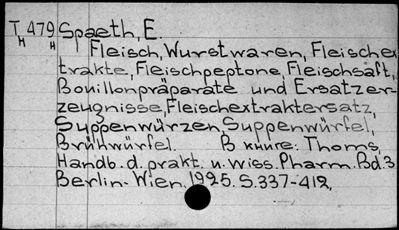 T 479 Spaeth, E.
н н
Fleisch, Wurstwaren, Fleischex-
trakte, Fleischpeptone, Fleischsaft,
Bouillonpräparate und Ersatzer-
zeugnisse, Fleischextraktersatz,
Suppenwürzen, Suppenwürfel,
Brühwürfel. В книге: Thoms,
Handb. d. prakt. u. wiss. Pharm. Bd. 3
Berlin-Wien, 1925. S. 337-412,